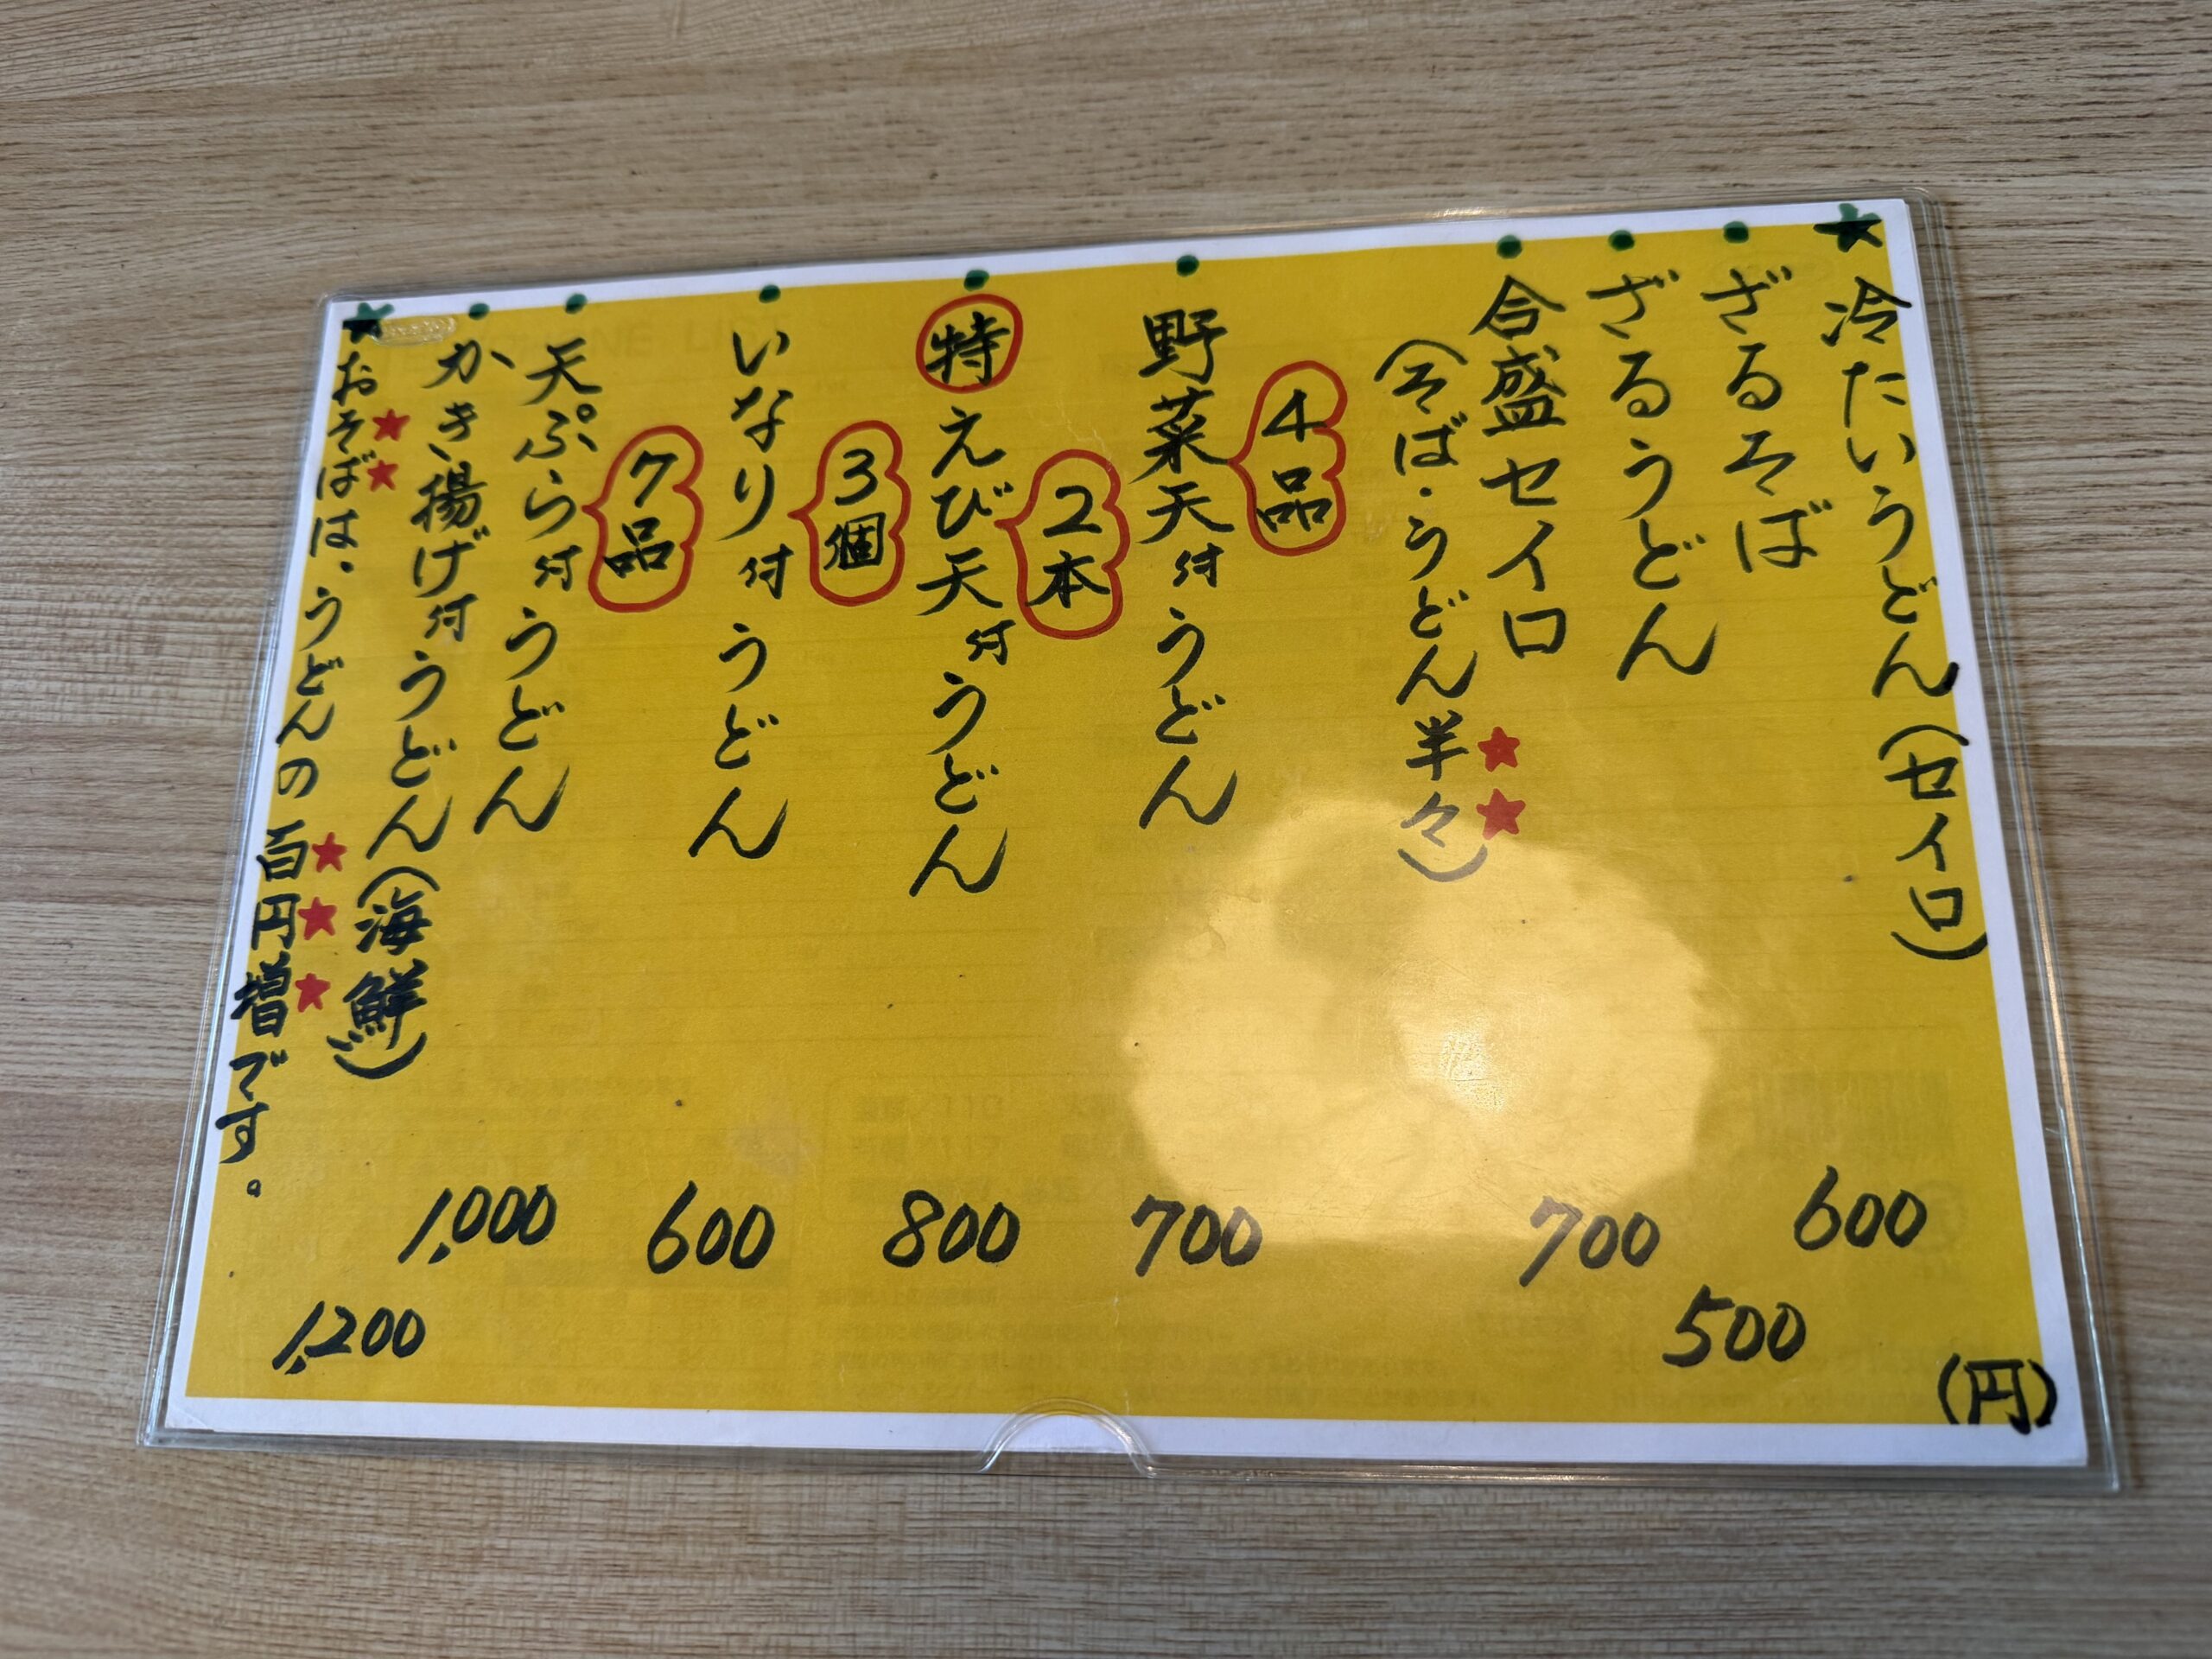 ★冷たいうどん(セイロ)
・ざるそば 600
・ざるうどん 500
・合盛セイロ 700
(そば・うどん半々)
4品
・野菜天付うどん 700
2本
・特えび天付うどん 800
3個
・いなり付うどん 600
7品
・天ぷら付うどん 1,000
・かき揚げ付うどん(海鮮) 1,200
★おそばは、うどんの百円増です。
(円)